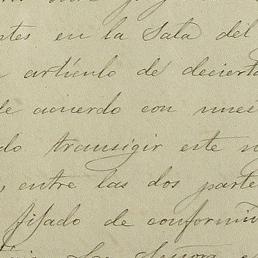 ntes en la Sala del
artículo de decierto
de acuerdo con nues
do transigir este n
s, entre las dos parte
fijado de conformi
la Señora